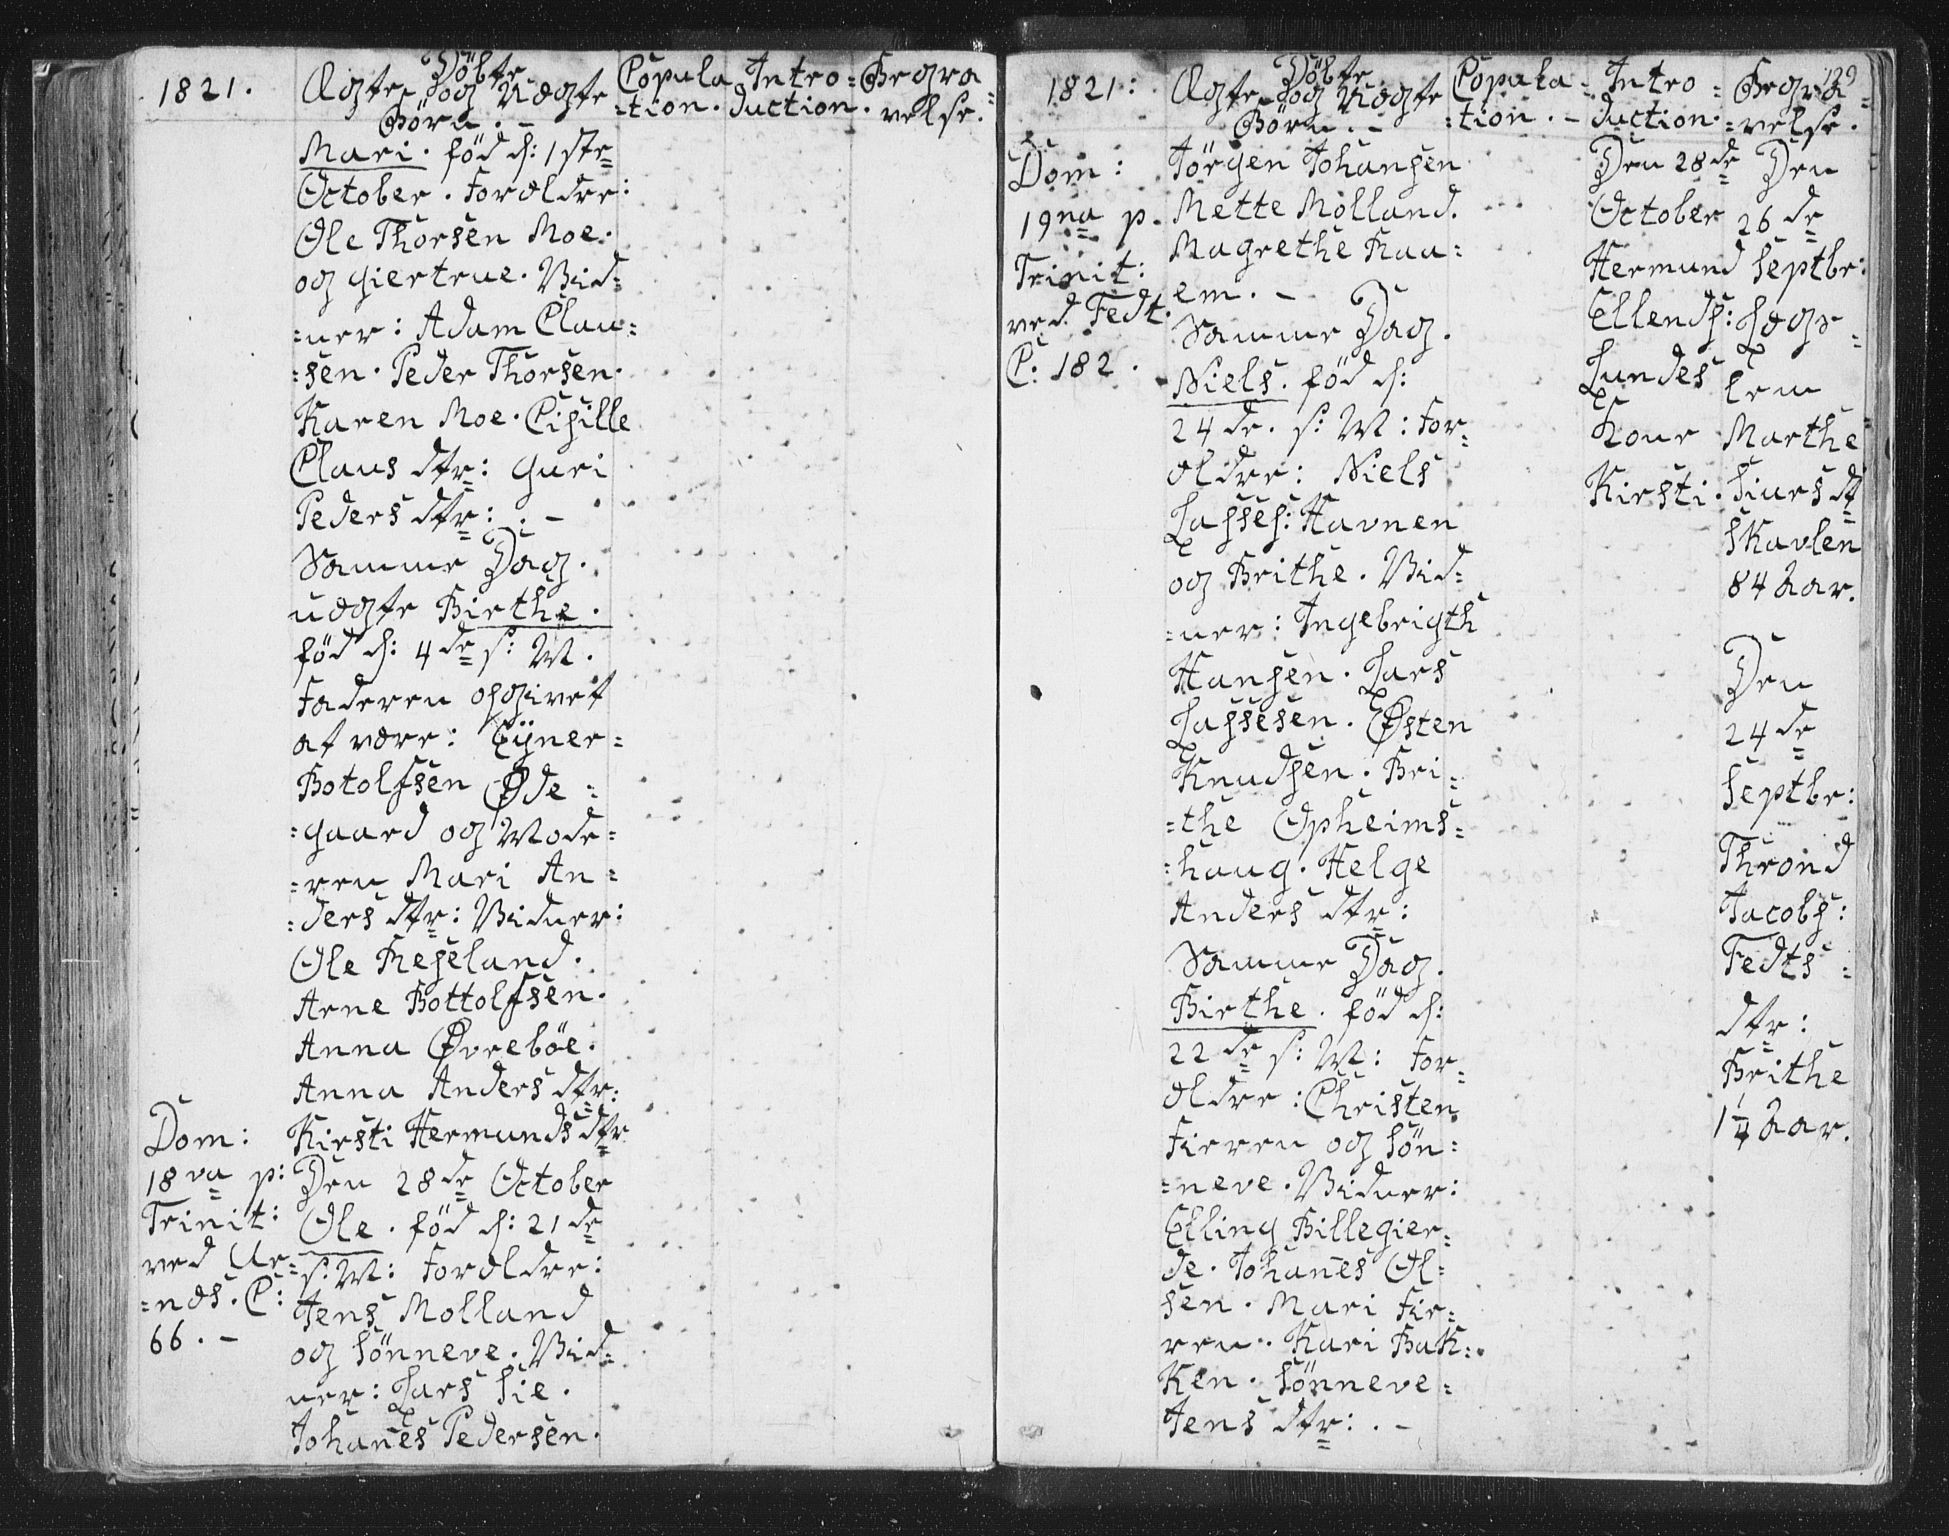 1821.
Døbte
Ægte og Uægte
Børn. -
Copula
-tion.
Intro=
duction.
Begra=
velse.
Mari. fød d: 1ste
October. Forældre:
Ole Thorsen Moe.
og Giertrue. Vid=
=ner: Adam Clau=
=sen. Peder Thorsen.
Karen Moe. Cisille
Claus dtr: Guri
Peders dtr: . -
Samme Dag.
uægte Birthe.
fød d: 4de s: M.
Faderen opgivet
at være: Eÿner=
Botolfsen Øde=
=gaard og Mode=
=ren Mari An=
=ders dtr: Vidner:
Ole Refseland.
Arne Bottolfsen.
Anna Øvrebøe.
Anna Anders dtr:
Kirsti Hermunds dtr
Dom:
18va p:
Trinit:
ved Ur=
=næs. C:
66. -
Den 28de October
Ole. fød d: 21de
s: M: Forældre:
Jens Molland
og Sønneve. Vid=
ner: Lars Sie.
Johanes Pedersen.
1821:
Døbte
Ægte og Uægte
Børn. -
Copula=
=tion. -
Intro=
duction.
Begra=
=velse.
129
Dom:
19na p.
Trinit:
ved Fedt.
C: 182.
Jørgen Johansen
Mette Molland.
Magrethe Kaa=
em. -
Samme Dag.
Niels. fød d:
24de. s: M: For=
ældre: Niels
Lasses: Havnen
og Brithe. Vid=
=ner: Ingebrigth
Hansen. Lars
Lassesen. Østen
Knudsen. Bri=
=the Opheims=
=haug. Helge
Anders dtr:
Samme Dag.
Birthe. fød d:
22de s: M: For=
ældre: Christen
Fieren og Søn=
=neve. Vidner:
Elling Billegier=
de. Johanes Ol=
sen. Mari Fie=
ren. Kari Bak=
ken. Sønneve=
Jens dtr: . -
Den 28de
October
Hermund
Ellends:
Lundes
Kone
Kirsti.
Den
26de
Septbr:
Lægs=
lem
Marthe
Siurs dt
Skavlen
84 Aar.
Den
24de
Septbr:
Thrond
Jacobs:
Fedts=
dtr:
Brithe
1¼ Aar.